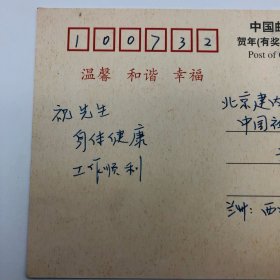 中国邮
贺年(有奖
Post of C
100732
温馨 和谐 幸福
祝先生
身体健康
工作顺利
北京建内
中国社
兰州：西